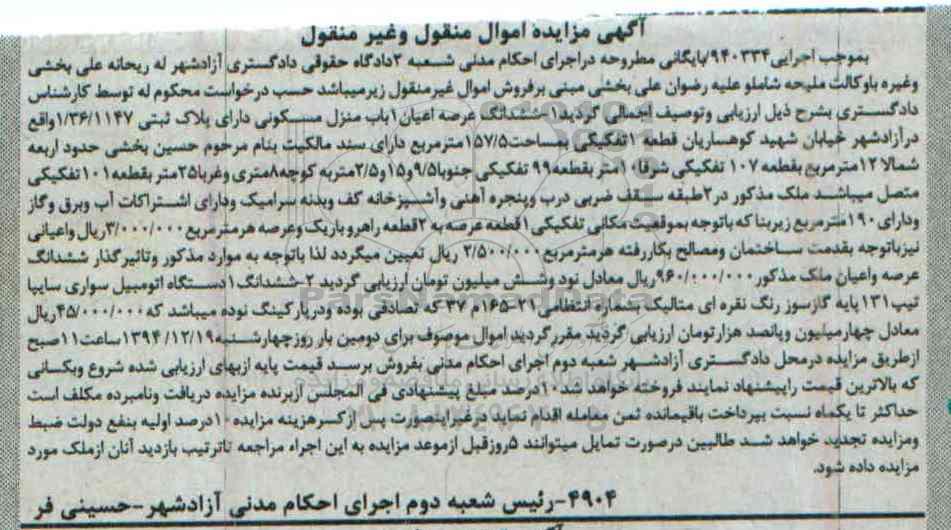 آگهی مزایده اموال منقول وغیر منقول
بموجب اجرایی۹۴۰۳۳۴/بایگانی مطروحه دراجرای احکام مدنی شعبه ۲دادگاه حقوقی دادگستری آزادشهر له ریحانه علی بخشی
وغیره باوکالت ملیحه شاملو علیه رضوان علی بخشی مبنی برفروش اموال غیرمنقول زیرمیباشد حسب درخواست محکوم له توسط کارشناس
دادگستری بشرح ذیل ارزیابی وتوصیف اجمالی گردید۱-ششدانگ عرصه اعیان ۱باب منزل مسکونی دارای پلاک ثبتی ۱/۳۶/۱۱۴۷واقع
درآزادشهر خیابان شهید کوهساریان قطعه ۱تفکیکی بمساحت۱۵۷/۵مترمربع دارای سند مالکیت بنام مرحوم حسین بخشی حدود اربعه
شمالا۱۲مترمربع بقطعه ۱۰۷ تفکیکی شرقا۱۰متر بقطعه۹۹ تفکیکی جنوبا۹/۵و۱۵و۲/۵متربه کوچه۸متری وغربا۲۵متر بقطعه۱۰۱تفکیکی
متصل میباشد ملک مذکور در۲طبقه سقف ضربی درب وپنجره آهنی وآشپزخانه کف وبدنه سرامیک ودارای اشتراکات آب وبرق وگاز
ودارای۱۹۰مترمربع زیربنا که باتوجه بموقعیت مکانی تفکیکی۱قطعه عرصه به ۲قطعه راهرو باریک وعرصه هرمترمربع۳/۰۰۰/۰۰۰ریال واعیانی
نیزباتوجه بقدمت ساختمان ومصالح بکاررفته هرمترمربع۲/۵۰۰/۰۰۰ ریال تعیین میگردد لذا باتوجه به موارد مذکور وتاثیرگذار ششدانگ
عرصه واعیان ملک مذکور۹۶۰/۰۰۰/۰۰۰ریال معادل نود وشش میلیون تومان ارزیابی گردید ۲-ششدانگ۱دستگاه اتومبیل سواری سایپا
تیپ۱۳۱ پایه گازسوز رنگ نقره ای متالیک بشماره انتظامی۲۱-۱۶۵م۳۷ که تصادفی بوده ودرپارکینگ نوده میباشد که۴۵/۰۰۰/۰۰۰ریال
معادل چهارمیلیون وپانصد هزارتومان ارزیابی گردید مقررگردید اموال موصوف برای دومین بار روزچهارشنبه۱۳۹۴/۱۲/۱۹ساعت۱۱صبح
ازطریق مزایده درمحل دادگستری آزادشهر شعبه دوم اجرای احکام مدنی بفروش برسد قیمت پایه ازبهای ارزیابی شده شروع وبکسانی
که بالاترین قیمت راپیشنهاد نمایند فروخته خواهد شد ۱۰درصد مبلغ پیشنهادی فی المجلس ازبرنده مزایده دریافت ونامبرده مکلف است
حداکثر تا یکماه نسبت بپرداخت باقیمانده ثمن معامله اقدام نماید درغیراینصورت پس ازکسرهزینه مزایده ۱۰درصد اولیه بنفع دولت ضبط
ومزایده تجدید خواهد شد طالبین درصورت تمایل میتوانند ۵روزقبل ازموعد مزایده به این اجراء مراجعه تاترتیب بازدید آنان ازملک مورد
مزایده داده شود.
۴۹۰۴-رئیس شعبه دوم اجرای احکام مدنی آزادشهر-حسینی فر
ParsNamadData